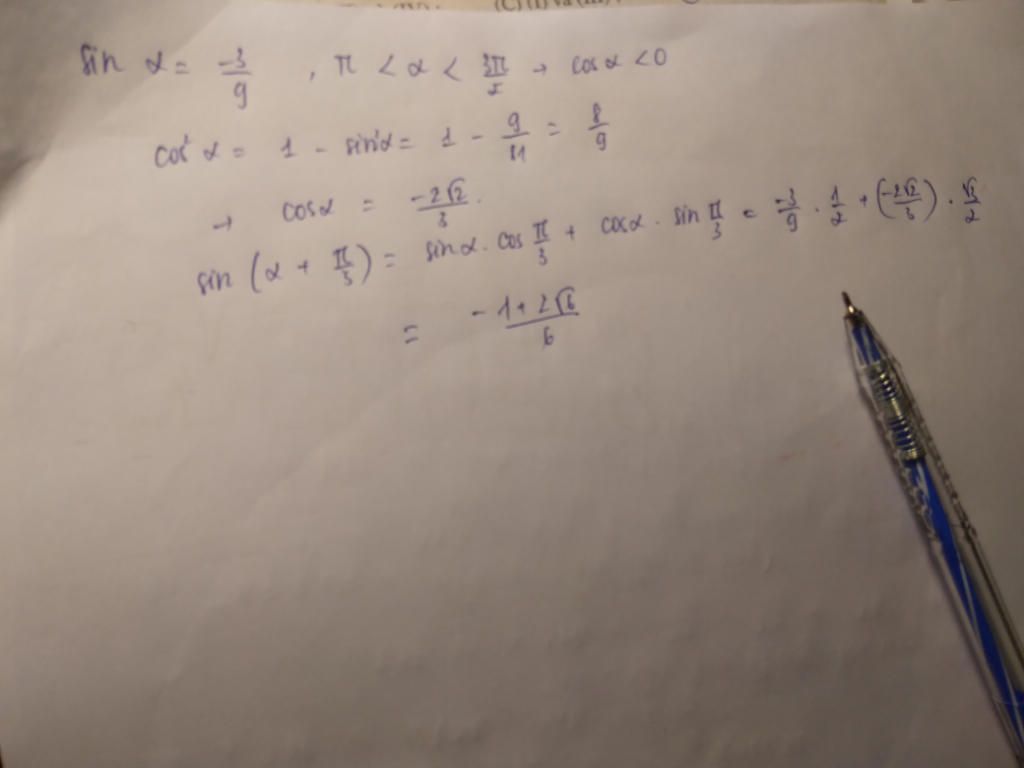 (C) (I) và (III).
sin α = -3/9 , π < α < 3π/2 → cos α < 0
cos² α = 1 - sin² α = 1 - 9/81 = 8/9
→ cos α = -2√2/3.
sin (α + π/3) = sin α . cos π/3 + cos α . sin π/3 = -3/9 . 1/2 + (-2√2/3) . √3/2
= - 1 + 2√6/6